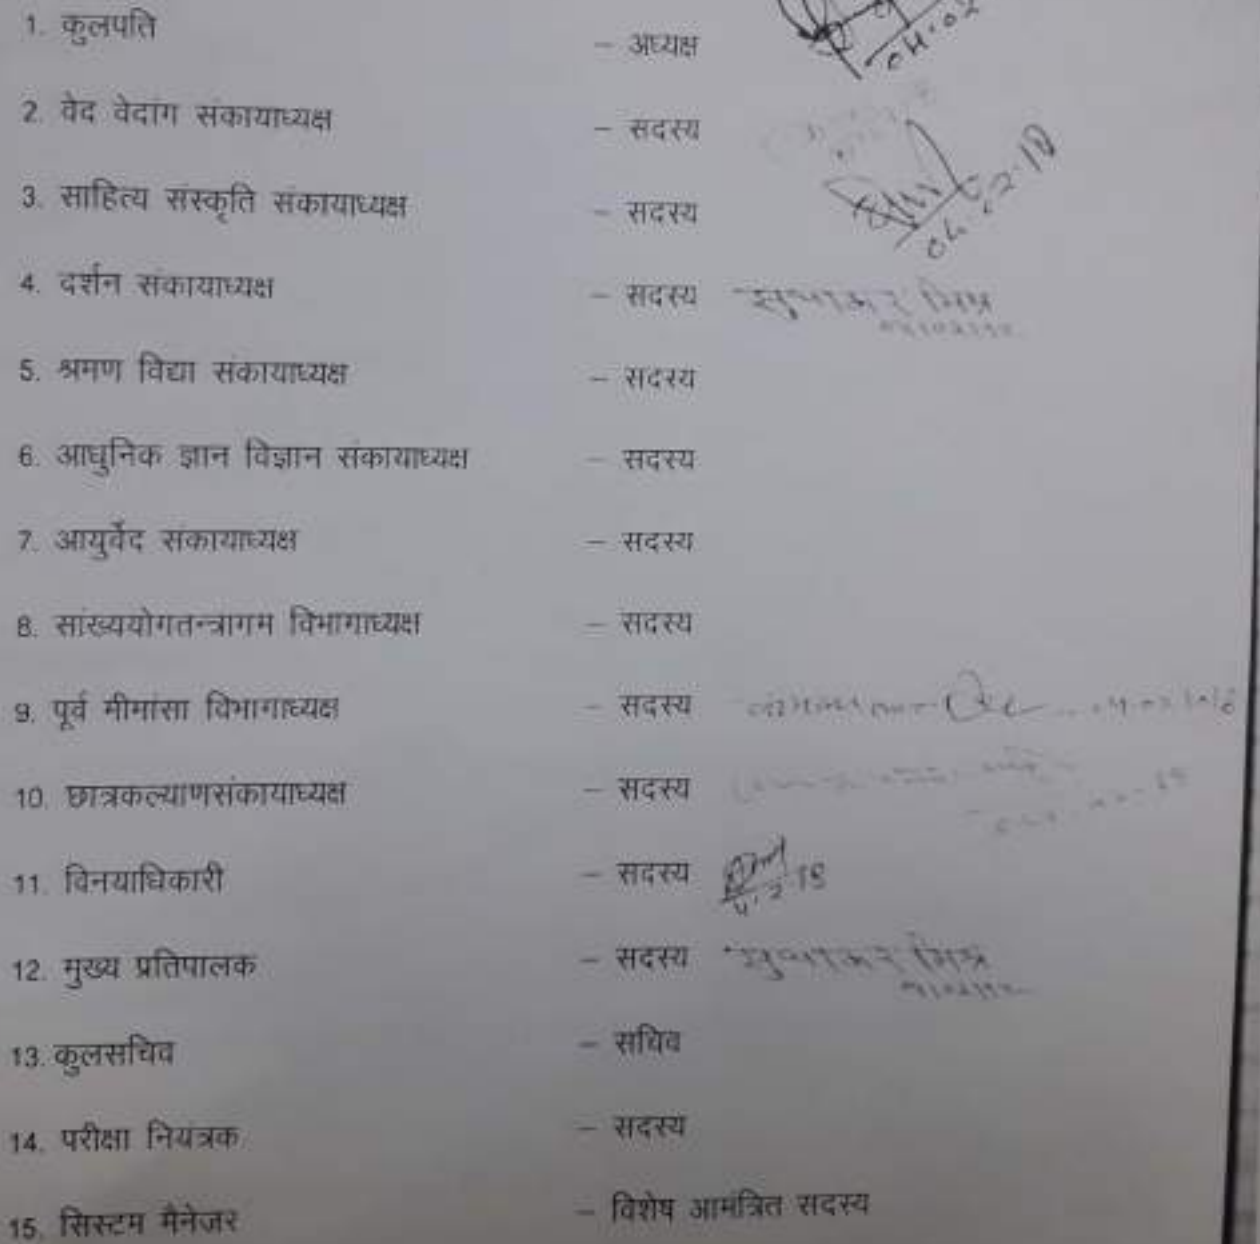 1. कुलपति – अध्यक्ष
2. वेद वेदांग संकायाध्यक्ष – सदस्य
3. साहित्य संस्कृति संकायाध्यक्ष – सदस्य
4. दर्शन संकायाध्यक्ष – सदस्य सुधाकर मिश्र
5. श्रमण विद्या संकायाध्यक्ष – सदस्य
6. आधुनिक ज्ञान विज्ञान संकायाध्यक्ष – सदस्य
7. आयुर्वेद संकायाध्यक्ष – सदस्य
8. सांख्ययोगतन्त्रागम विभागाध्यक्ष – सदस्य
9. पूर्व मीमांसा विभागाध्यक्ष – सदस्य
10. छात्रकल्याणसंकायाध्यक्ष – सदस्य
11. विनयाधिकारी – सदस्य
12. मुख्य प्रतिपालक – सदस्य सुधाकर मिश्र
13. कुलसचिव – सचिव
14. परीक्षा नियंत्रक – सदस्य
15. सिस्टम मैनेजर – विशेष आमंत्रित सदस्य